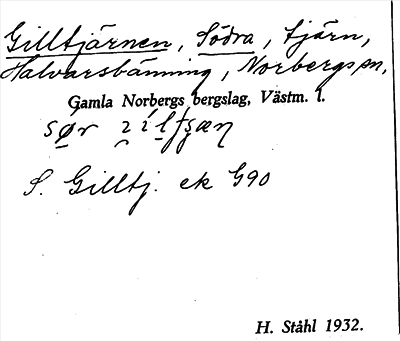 Gilltjärnen, Södra, tjärn,
Halvarsbänning, Norbergs sn,
Gamla Norbergs bergslag, Västm. l.
S. Gilltj. ek G90
H. Ståhl 1932.